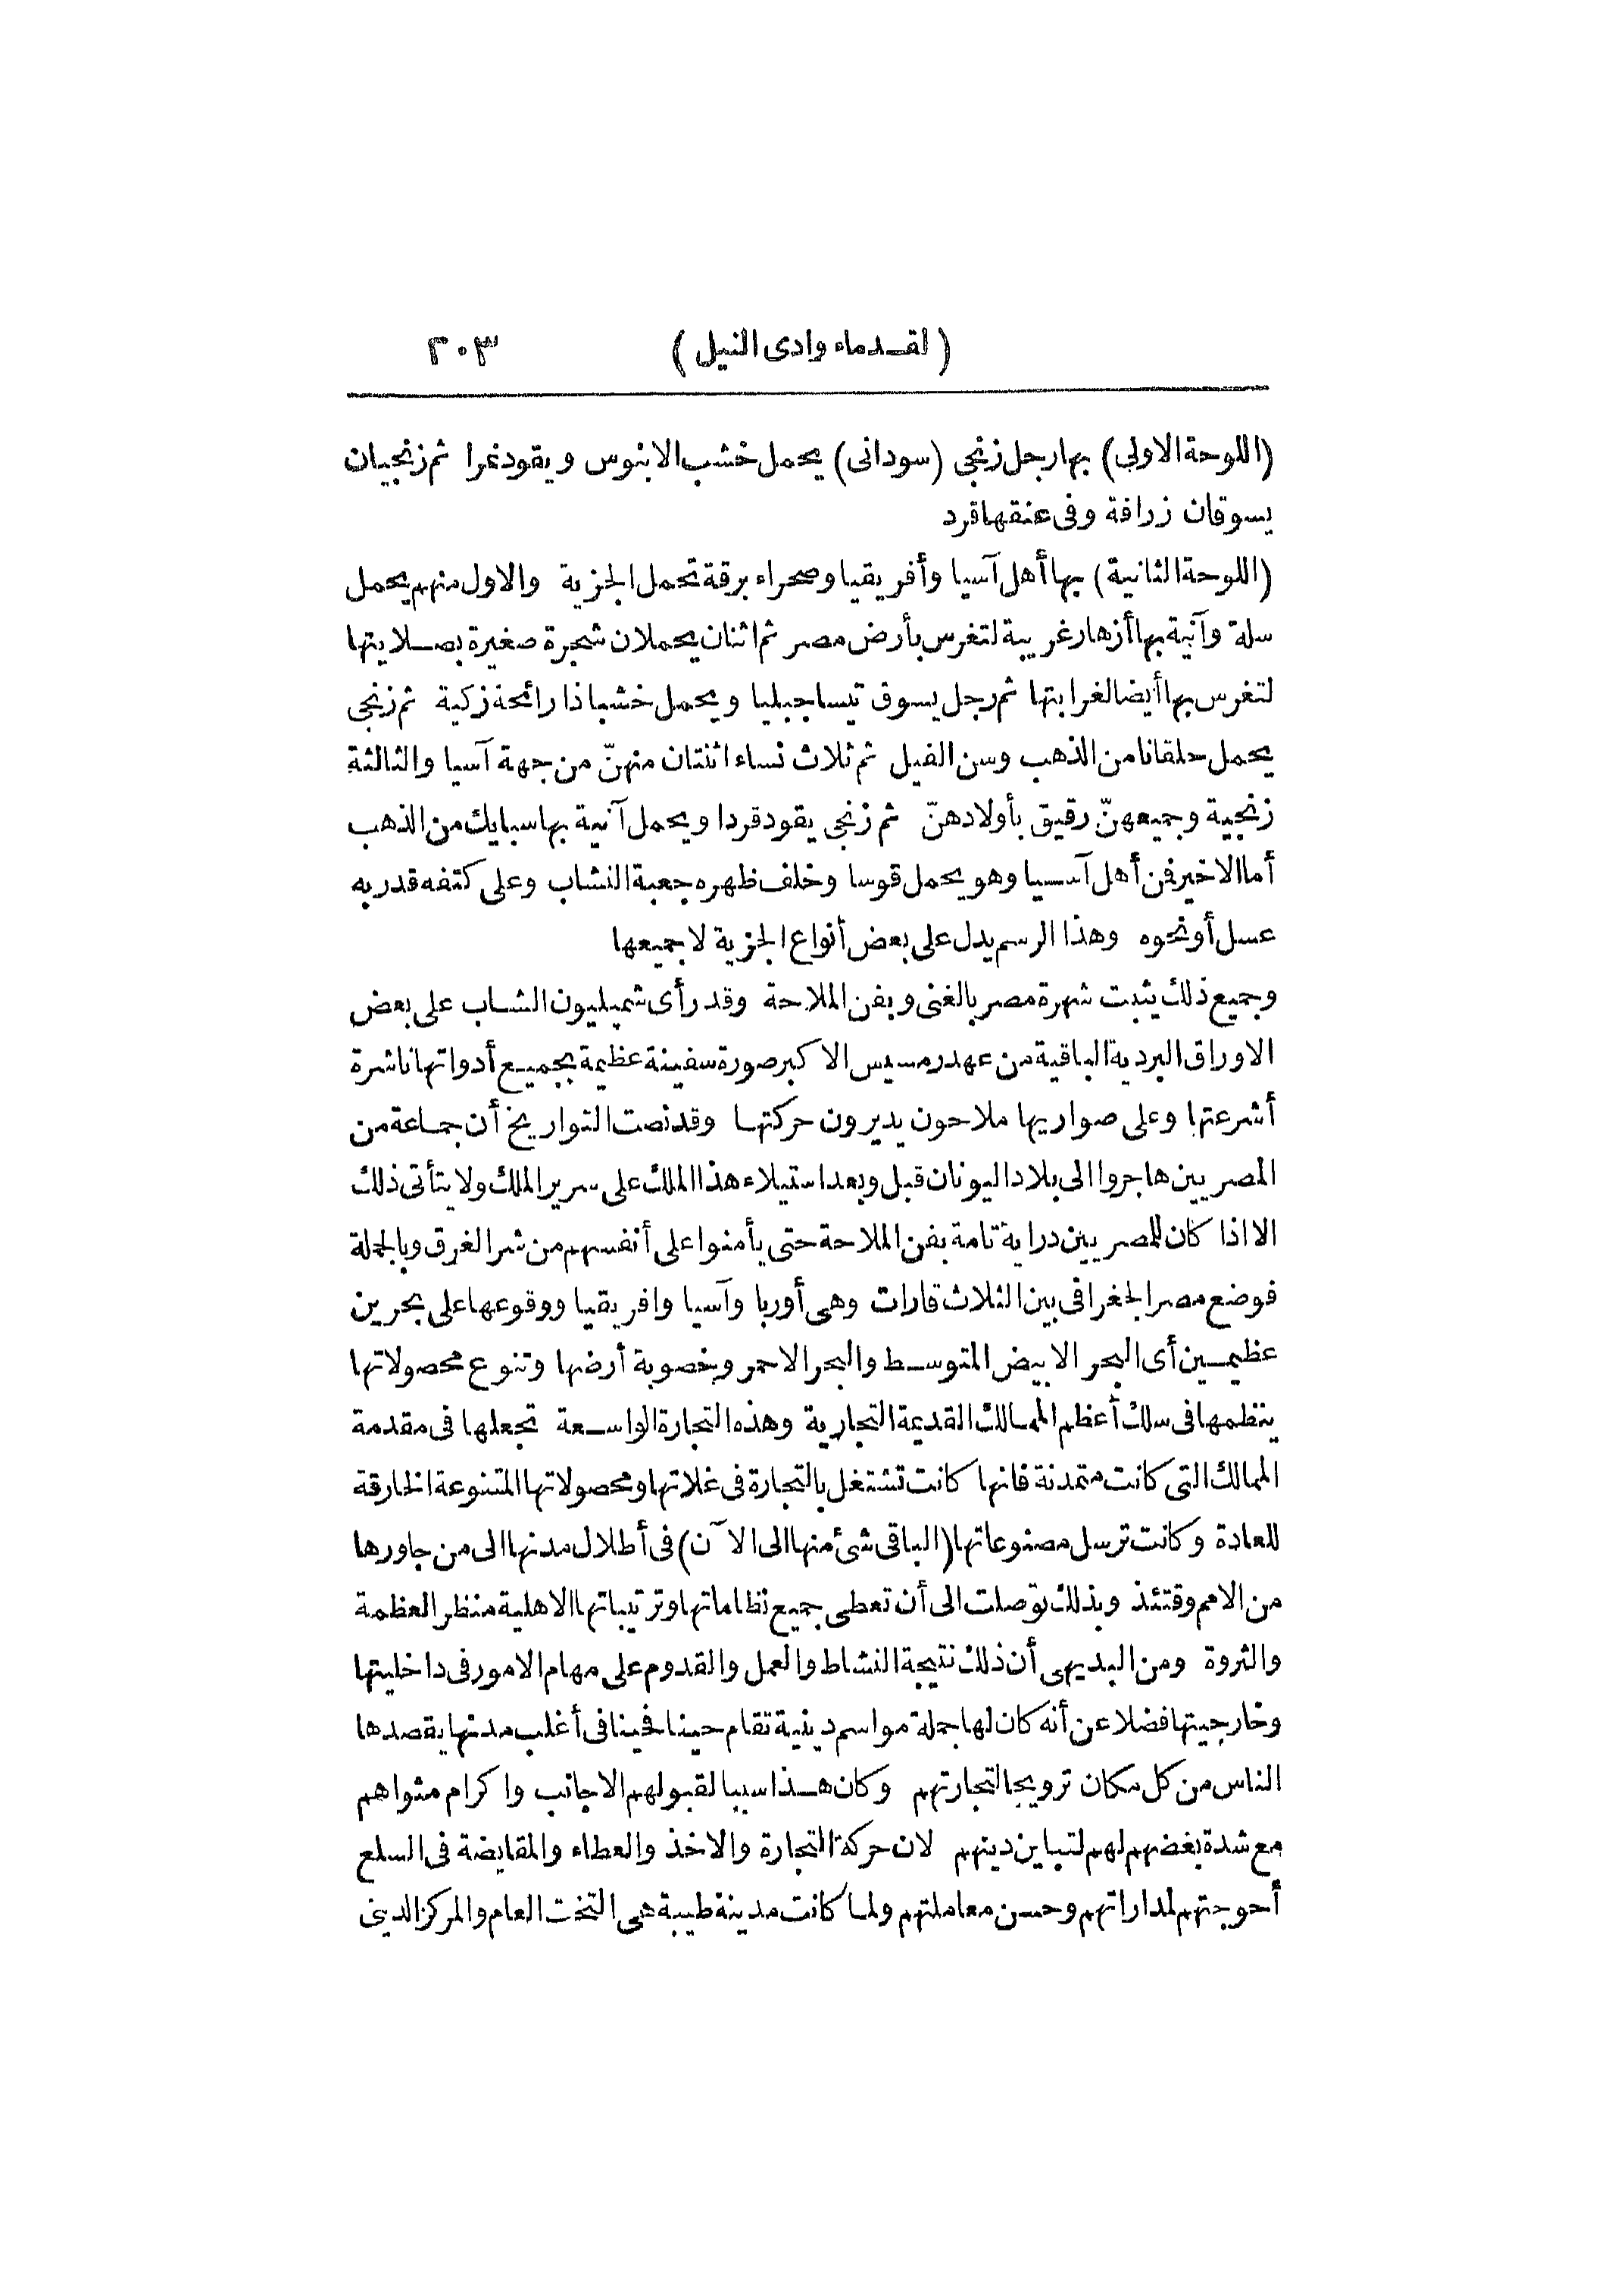 (لقدماء وادى النيل) ٢٠٣
(اللوحة الاولى) بها رجل زنجى (سودانى) يحمل خشب الابنوس ويقود نمرا ثم زنجيان
يسوقان زرافة وفى عنقها قرد
(اللوحة الثانية) بها أهل آسيا وأفريقيا وصحراء برقة تحمل الجزية والاول منهم يحمل
سلة وآنية بها أزهار غريبة لتغرس بأرض مصر ثم اثنان يحملان شجرة صغيرة بصلايتها
لتغرس بها أيضا لغرابتها ثم رجل يسوق تيسا جبليا ويحمل خشبا ذا رائحة زكية ثم زنجى
يحمل حلقانا من الذهب وسن الفيل ثم ثلاث نساء اثنتان منهنّ من جهة آسيا والثالثة
زنجية وجميعهنّ رقيق بأولادهنّ ثم زنجى يقود قردا ويحمل آنية بها سبايك من الذهب
أما الاخير فمن أهل آسيا وهو يحمل قوسا وخلف ظهره جعبة النشاب وعلى كتفه قدر به
عسل أو نحوه وهذا الرسم يدل على بعض أنواع الجزية لا جميعها
وجميع ذلك يثبت شهرة مصر بالغنى وبفن الملاحة وقد رأى شمپليون الشاب على بعض
الاوراق البردية الباقية من عهد رمسيس الاكبر صورة سفينة عظيمة بجميع أدواتها ناشرة
أشرعتها وعلى صواريها ملاحون يديرون حركتها وقد نصت التواريخ أن جماعة من
المصريين هاجروا الى بلاد اليونان قبل وبعد استيلاء هذا الملك على سرير الملك ولا يتأتى ذلك
الا اذا كان للمصريين دراية تامة بفن الملاحة حتى يأمنوا على أنفسهم من شر الغرق وبالجملة
فوضع مصر الجغرافى بين الثلاث قارات وهى أوربا وآسيا وافريقيا ووقوعها على بحرين
عظيمين أى البحر الابيض المتوسط والبحر الاحمر وخصوبة أرضها وتنوع محصولاتها
ينظمها فى سلك أعظم الممالك القديمة التجارية وهذه التجارة الواسعة تجعلها فى مقدمة
الممالك التى كانت متمدنة فانها كانت تشتغل بالتجارة فى غلاتها ومحصولاتها المتنوعة الخارقة
للعادة وكانت ترسل مصنوعاتها (الباقى شئ منها الى الآن) فى أطلال مدنها الى من جاورها
من الامم وقتئذ وبذلك توصلت الى أن تعطى جميع نظاماتها وترتيباتها الاهلية منظر العظمة
والثروة ومن البديهى أن ذلك نتيجة النشاط والعمل والقدوم على مهام الامور فى داخليتها
وخارجيتها فضلا عن أنه كان لها جملة مواسم دينية تقام حينا فحينا فى أغلب مدنها يقصدها
الناس من كل مكان ترويجا لتجارتهم وكان هذا سببا لقبولهم الاجانب واكرام مثواهم
مع شدة بغضهم لهم لتباين دينهم لان حركة التجارة والاخذ والعطاء والمقايضة فى السلع
أحوجتهم لمداراتهم وحسن معاملتهم ولما كانت مدينة طيبة هى التخت العام والمركز الدينى